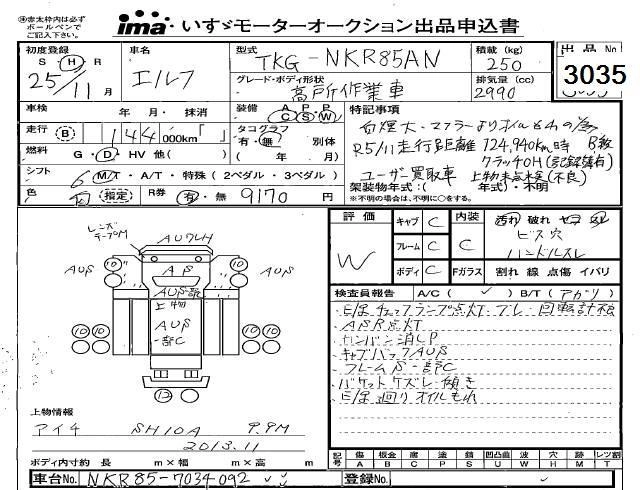 ※赤太枠内は必ず
ボールペンで
ご記入下さい。
ima いすゞモーターオークション出品申込書
初度登録 車名 型式 積載 (kg) 出品No
S・H・R エルフ TKG-NKR85AN 250 3035
25/11月 グレード・ボディ形状 排気量 (cc)
高所作業車 2990
車検 年 月・抹消 装備 A P P C S W 特記事項
走行 B 144 000km「 」 タコグラフ 有・無 別体
白煙大・マフラーよりオイルもれの為
R5/11走行距離 124,940km時 B級
燃料 G・D・HV 他( ) ( 年 月)
クラッチOH(記録簿有)
シフト 6 M/T・A/T・特殊(2ペダル・3ペダル)
ユーザー買取車 上物未点検(不良)
色 白 指定 R券 有・無 9170円
架装物年式:( 年式)・不明
※不明の場合は、不明に○をする。
評価 W
キャブ C 内装 C 汚れ 破れ コゲ スレ
フレーム C ビス穴
ハンドルスレ
ボディ C Fガラス 割れ 線 点傷 イバリ
検査員報告 A/C( ✓ ) B/T(アガリ)
・E/gチェックランプ点灯・
・ASR点灯
・カンバン消しP
・キャブバックAUS
・フレームS一部C
・バケットケズレ・傾き
・E/g廻りオイルもれ
レンズ
テープM
AU7LH
AUS
AUS
AS
AUS一部
上物
AUS
一部C
10
10
10
10
10
上物情報
アイチ SH10A 9.9M
2013.11
ボディ内寸約 長 m×幅 m×高 m
記号 傷 板金 腐 塗 錆 凹凸曲 波 穴 跡 レツ割
A B C P S U W H M T
車台No. NKR85-7034092 登録No.